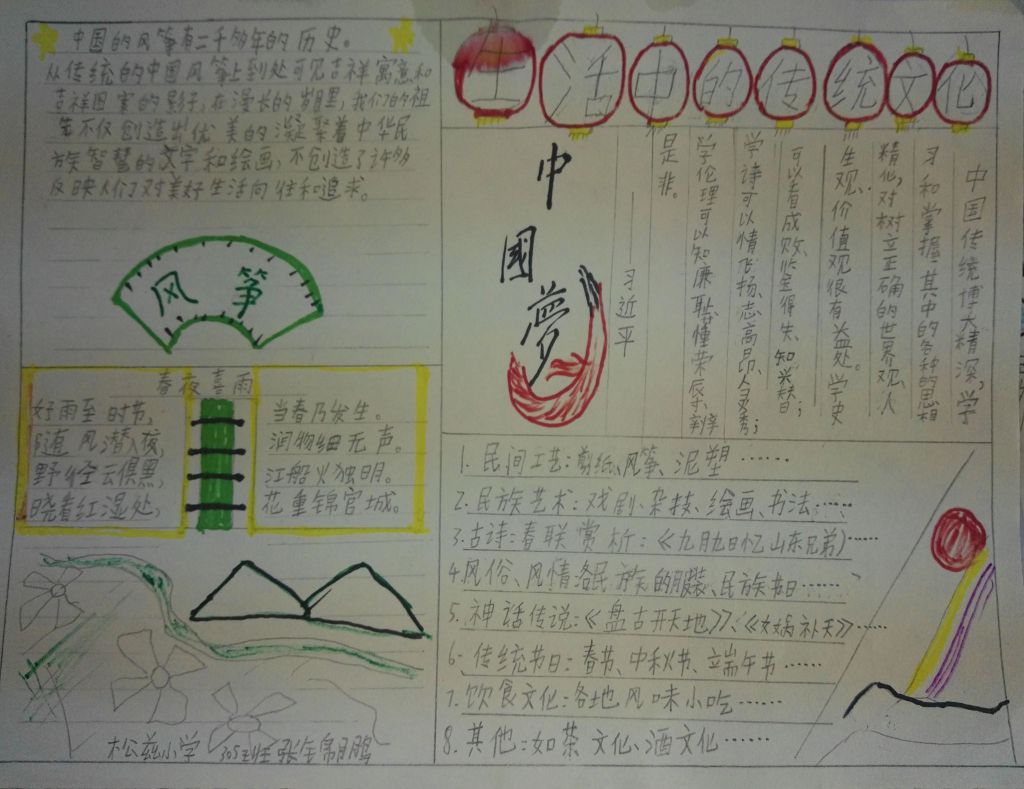 生活中的传统文化
中国的风筝有二千多年的历史。
从传统的中国风筝上到处可见吉祥寓意和
吉祥图案的影子,在漫长的岁月里,我们的祖
先不仅创造出优美的凝聚着中华民
族智慧的文字和绘画,不创造了许多
反映人们对美好生活向往和追求。
风筝
春夜喜雨
好雨至时节,
当春乃发生。
随风潜入夜,
润物细无声。
野径云俱黑,
江船火独明。
晓看红湿处,
花重锦官城。
松兹小学 305班
中國夢
中国传统博大精深,学
习和掌握其中的各种的思想
精化,对树立正确的世界观、人
生观、价值观很有益处。学史
可以看成败、监室得失、知兴秩日;
学诗可以情飞扬、志高昂、人灵秀;
学伦理可以知廉耻、懂荣辱、辨
是非。
——习近平
1. 民间工艺:剪纸、风筝、泥塑……
2. 民族艺术:戏剧、杂技、绘画、书法……
3. 古诗:春联赏析:《九月九日忆山东兄弟》……
4. 风俗、风情各民族的服装、民族节日……
5. 神话传说:《盘古开天地》、《女娲补天》……
6. 传统节日:春节、中秋节、端午节……
7. 饮食文化:各地风味小吃……
8. 其他:如茶文化、酒文化……